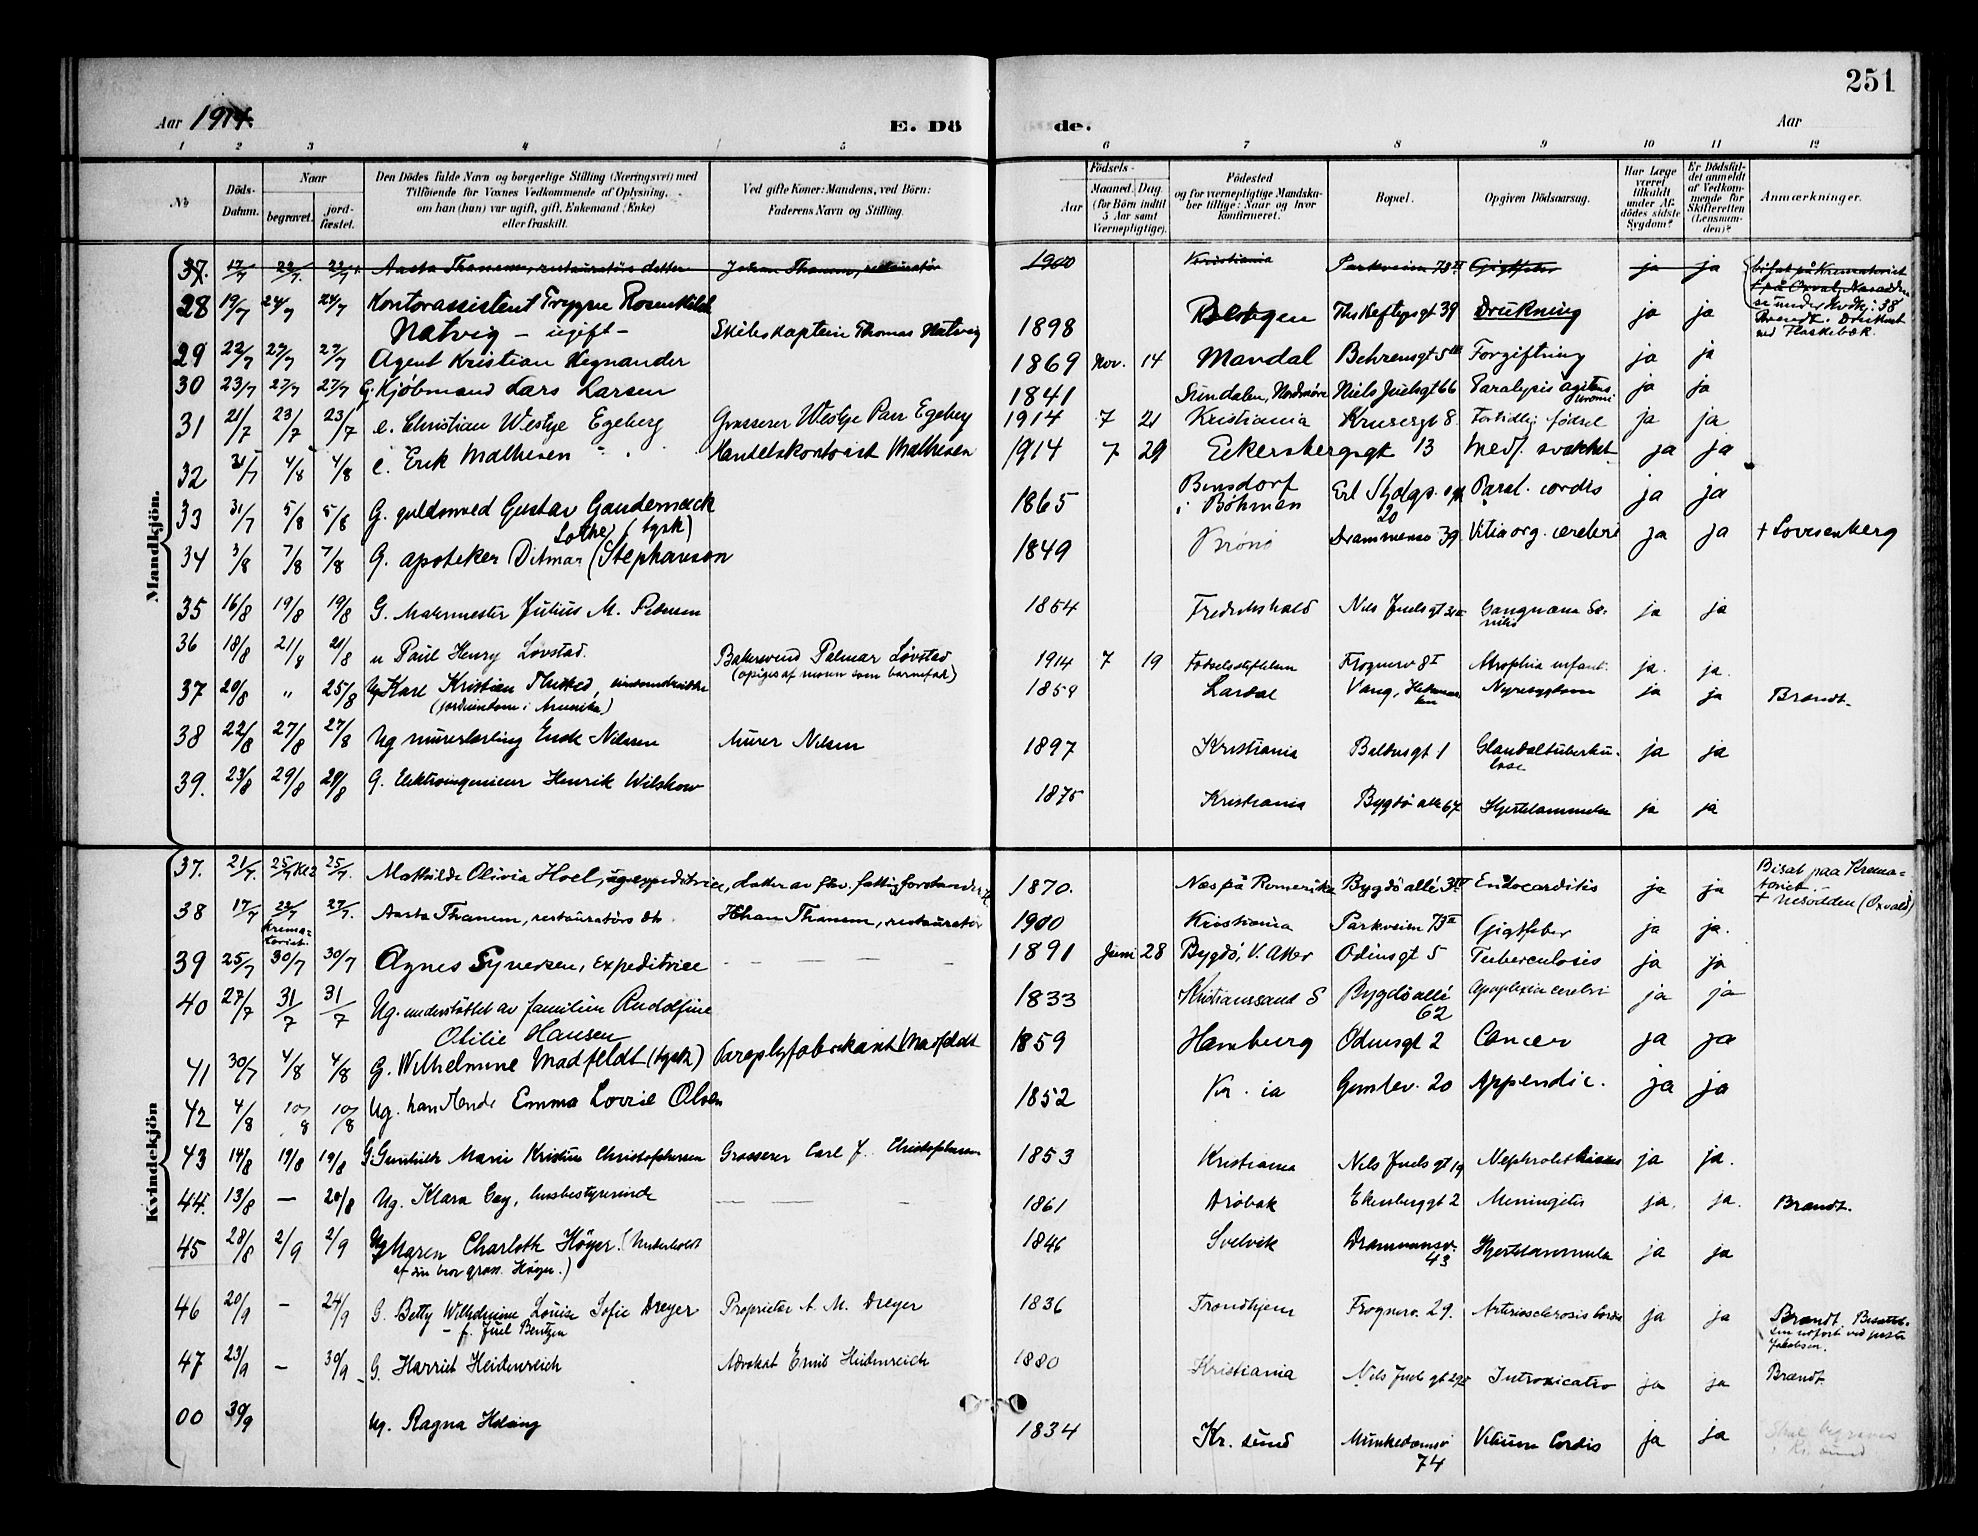 251
Aar 1914.
E. Dö
de.
Aar
1 2 3 4 5 6 7 8 9 10 11 12
No
Döds-Datum.
Naar
begravet.
jord-fæstet.
Den Dödes fulde Navn og borgerlige Stilling (Næringsvei) med
Tilföiende for Voxnes Vedkommende af Oplysning,
om han (hun) var ugift, gift, Enkemand (Enke)
eller fraskilt.
Ved gifte Koner: Mandens, ved Börn:
Faderens Navn og Stilling.
Födsels-
Aar
Maaned Dag
(for Börn indtil
5 Aar samt
Værnepligtige).
Födested
og for værnepligtige Mandska-
ber tillige: Naar og hvor
konfirmeret.
Bopæl.
Opgiven Dödsaarsag.
Har Læge
været
tilkaldt
under Af-
dödes sidste
Sygdom?
Er Dödsfal-
det anmeldt
af Vedkom-
mende for
Skifteretten
(Lensman-
den)?
Anmærkninger.
Mandkjön.
37. 17/7 22/7 22/7 Aasta Thanem, restauratörs datter Johan Thanem, restauratör 1900 Kristiania Parkveien 73 II Gigtfeber ja ja
28 19/7 24/7 24/7 Kontorassistent Trygve Rosenkilde
Natvig – ugift – Skibskaptein Thomas Natvig 1898 Bergen Ths Heftyesgt 39 Drukning ja ja Brandt. Druknet
ved Flaskebæk.
29 22/7 27/7 27/7 Agent Kristian Hegnander 1869 Nov. 14 Mandal Behrensgt 5 III Forgiftning ja ja
30 23/7 27/7 27/7 G. Kjöbmand Lars Larsen 1841 Sundalen, Nordmöre Niels Juelsgt 66 Paralysis agitans ja ja
31 21/7 23/7 23/7 e. Christian Westye Egeberg Grosserer Westye Parr Egeberg 1914 7 21 Kristiania Krusesgt 8. Fortidlig födsel ja ja.
32 31/7 4/8 4/8 e. Erik Mathesen Handelskontorist Mathesen 1914 7 29 Eckersbergsgt 13 Medf. svakhet ja ja
33 31/7 5/8 5/8 G. guldsmed Gustav Gaudernack
(tysk) 1865 Bensdorf
i Böhmen Erl. Skjolgs. gt.
20 Paral. cordis ja ja
34 3/8 7/8 7/8 G. apoteker Ditmar Stephanson 1849 Brönö Drammensv 39 Vitia org. cerebri ja ja + Lovisenberg
35 16/8 19/8 19/8 G. Malermester Julius M. Pedersen 1854 Fredrikshald Nils Juels gt Gangræna Se-
nilis ja ja
36 18/8 21/8 21/8 u Paul Henry Lövstad. Bakersvend Palmar Lövstad
(opgives af moren som barnefar) 1914 7 19 Födselsstiftelsen Frognerv 8 I Atrophia infant. ja. ja.
37 20/8 " 25/8 Ug Karl Kristian Thisted,
(jordeiendom i Amerika) 1859 Lardal Vang, Hedemar-
ken Nyresygdom ja ja Brandt.
38 22/8 27/8 27/8 Ug murerlærling Enok Nilsen Murer Nilsen 1897 Kristiania Baldersgt 1 Glandeltuberku-
lose ja ja
39. 23/8 29/8 29/8 G. Elektroingeniør Henrik Wilskow 1875 Kristiania Bygdö alle 67 Hjertelammelse ja ja
Kvindekjön
37. 21/7. 25/7 Kl 2 25/7. Mathilde Olivia Hoel, ug. expeditrice, datter av fhv. fattigforstander 1870. Næs på Romerike Bygdö allé 3 IV Endocarditis ja ja Bisat paa Krema-
toriet.
+ Nesodden (Oxval)
38 17/7 22/7 Krema-
toriet. 27/7. Aasta Thanem, restauratörs dtr. Johan Thanem, restauratör 1900 Kristiania Parkveien 73 II Gigtfeber ja ja.
39 25/7 30/7 30/7 Agnes Syversen, Expeditrice 1891 Juni 28 Bygdö, V. Aker Odinsgt 5 Tuberculosis ja ja
40 27/7 31/7 31/7 Ug. understöttet av familien Rudolfine
Otilie Hansen 1833 Kristianssand S Bygdö allé
62 Apoplexia cerebri ja ja
41 30/7 4/8 4/8 G. Wilhelmine Madfeldt (tysk) Paraplyfabrikant Madfeldt 1859 Hamburg Odinsgt 2 Cancer ja ja
42 4/8 10/8 10/8 Ug. handlende Emma Lovise Olsen 1852 Kr. ia Gimlev. 20 Appendic. ja ja
43 14/8 19/8 19/8 G. Gunhilde Marie Kristine Christophersen Grosserer Carl J. Christophersen 1853 Kristiania Nils Juels gt 19 Nephrolithiasis ja ja.
44. 13/8 – 20/8 Ug. Klara Cay, husbestyrerinde 1861 Dröbak Ekersberggt 2 Meningitis ja. ja. Brandt.
45 28/8 2/9 2/9 Ug Maren Charlotte Höyer. (Underholdt
af sin bror gross. Höyer.) 1846 Svelvik Drammensv.
43 Hjertelammelse ja ja
46 20/9 – 24/9 G. Betty Wilhelmine Louise Sofie Dreyer
– f. Juel Bentzen Proprietær A. M. Dreyer 1836 Trondhjem Frognerv. 29. Arteriosclerosis Cordis ja ja Brandt. Bisættel-
sen utfört ved prest
Jakobsen.
47 23/9 – 30/9 G. Harriet Heidenreich Advokat Ernis Heidenreich 1880 Kristiania Nils Juels gt Intoxicatio ja ja Brandt.
00 30/9 Ug. Ragna Holsing 1834 Kr. sund Munkedamsv
74 Vitium Cordis ja ja Skal begraves
i Kr. sund